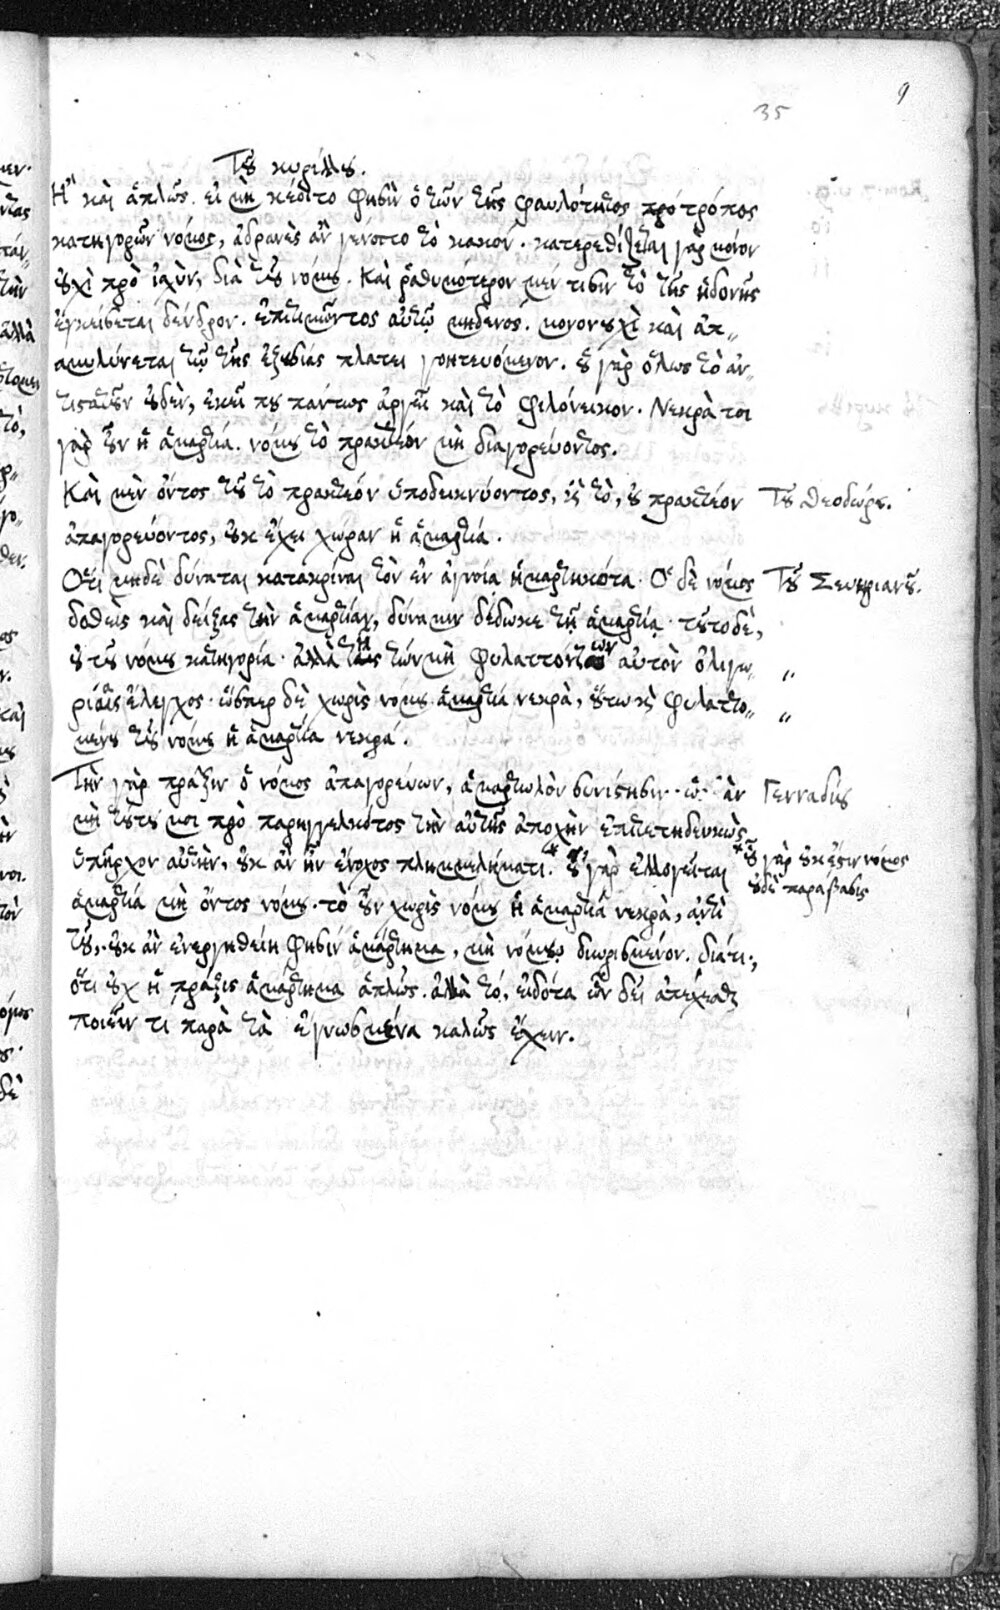 9
35
Τοῦ κυρίλλου.
Ἢ καὶ ἁπλῶς. εἰ μὴ κέοιτο φησὶν ὁ τῶν τῆς φαυλότητος πρό τρόπος
κατηγορῶν νόμος, ἀδρανὲς ἂν γένοιτο τὸ κακόν. κατερεθίζεται γὰρ μόνον
οὐχὶ πρὸ ἰσχὺν, διὰ τοῦ νόμου. Καὶ ῥαθυμότερον μέν τισιν τὸ τῆς ἡδονῆς
ἔγκεισεται δένδρον. ἐπιτιμῶντος αὐτῷ μηδενός. μονονουχὶ καὶ ἀπ"
αμβλύνεται τῷ τῆς ἐξουσίας πλατει γοητευόμενον. οὗ γὰρ ὅλως τὸ ἀν"
τιστατοῦν οὐδὲν, ἐκεῖ που πάντως ἀργεῖ καὶ τὸ φιλόνεικον. Νεκρὰ τοι
γὰρ οὖν ἡ ἁμαρτία. νόμου τὸ πρακτέον μὴ διαγορεύοντος.
Καὶ μὲν ὄντος τοῦ τὸ πρακτέον ὑποδεικνύοντος, καὶ τὸ, οὐ πρακτέον Τοῦ Θεοδώρου.
ἀπαγορεύοντος, οὐκ ἔχει χώραν ἡ ἁμαρτία.
Ὅτι μηδὲ δύναται κατακρῖναι τὸν ἐν ἀγνοίᾳ ἡμαρτηκότα. Ὁ δὲ νόμος Τοῦ Σευηριανοῦ.
δοθεὶς καὶ δείξας τὴν ἁμαρτίαν, δύναμιν δέδωκε τῇ ἁμαρτίᾳ. τοῦτο δὲ,
οὐ τοῦ νόμου κατηγορία. ἀλλὰ τῆς τῶν μὴ φυλαττόντων αὐτὸν ὀλιγω" "
ρίας ἔλεγχος. ὥσπερ δὲ χωρὶς νόμου ἁμαρτία νεκρὰ, οὕτω καὶ φυλαττο" "
μένου τοῦ νόμου ἡ ἁμαρτία νεκρά.
Τὴν γὰρ πρᾶξιν ὁ νόμος ἀπαγορεύων, ἁμαρτωλὸν συνίστησιν. ὡς ἂν Γενναδίου
μὴ τούτου μοι πρὸ παρηγγελκότος τὴν αὐτῆς ἀποχὴν ἐπιτετηδευκὼς
ὑπῆρχον αὐτὴν, οὐκ ἂν ἦν ἔνοχος πλημμελήματι.* οὐ γὰρ ἐλλογεῖται *οὗ γὰρ οὐκ ἔστιν νόμος
οὐδὲ παράβασις
ἁμαρτία μὴ ὄντος νόμου. τὸ οὖν χωρὶς νόμου ἡ ἁμαρτία νεκρὰ, ἀντὶ
τοῦ, οὐκ ἂν ἐνεργηθείη φησὶν ἁμάρτημα, μὴ νόμου διωρισμένον. διάτι.,
ὅτι οὐχ ἡ πρᾶξις ἁμάρτημα ἁπλῶς. ἀλλὰ τό, εἰδότα ὧν δεῖ ἀπέχεσθαι
ποιεῖν τι παρὰ τὰ ἐγνωσμένα καλῶς ἔχειν.